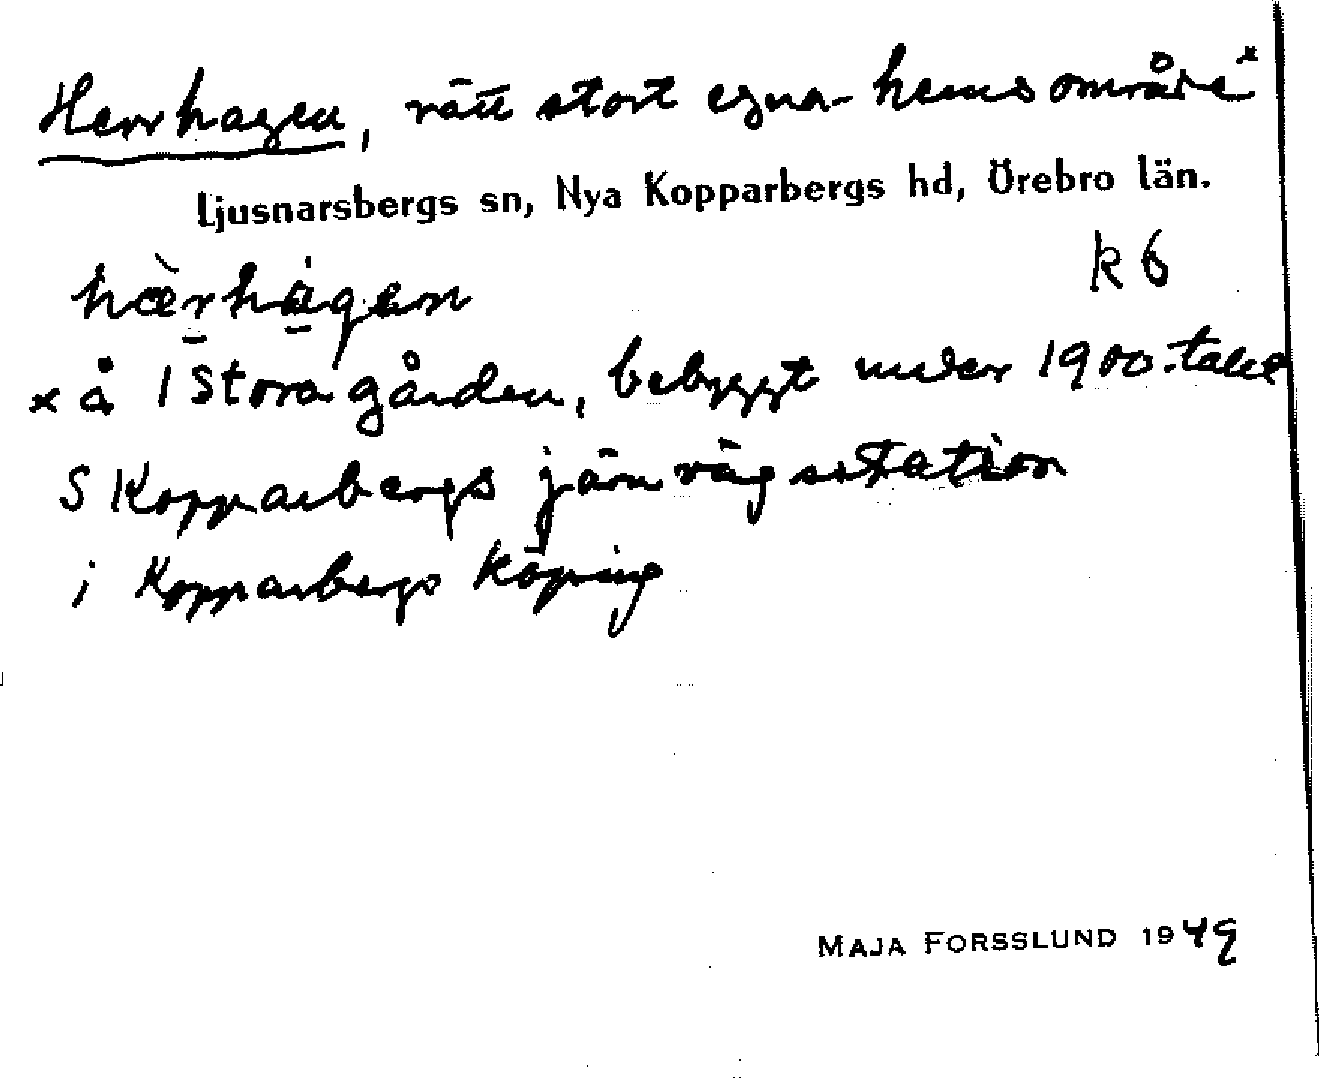 Herrhagen, rätt stort egna-hemsområde x
Ljusnarsbergs sn, Nya Kopparbergs hd, Örebro län.
hæ̀rhàgan k 6
x å 1 Storagården, bebyggt under 1900-talet
S Kopparbergs järnvägsstation
i Kopparbergs köping
MAJA FORSSLUND 1949